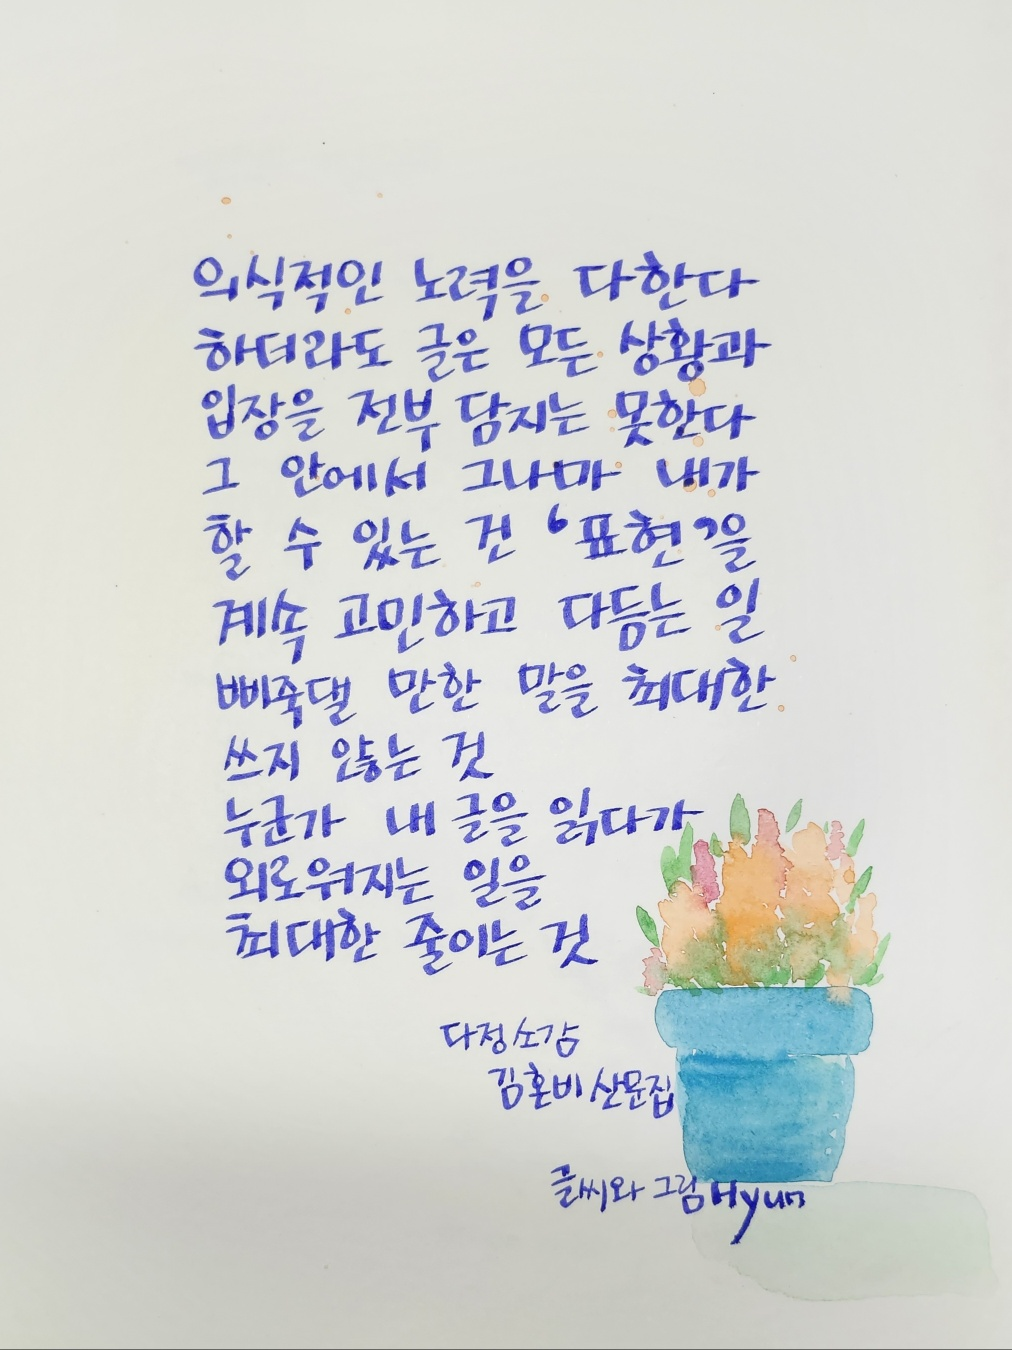 의식적인 노력을 다한다
하더라도 글은 모든 상황과
입장을 전부 담지는 못한다
그 안에서 그나마 내가
할 수 있는 건 '표현'을
계속 고민하고 다듬는 일
삐죽댈 만한 말을 최대한
쓰지 않는 것
누군가 내 글을 읽다가
외로워지는 일을
최대한 줄이는 것
다정소감
김혼비 산문집
글씨와 그림 Hyun